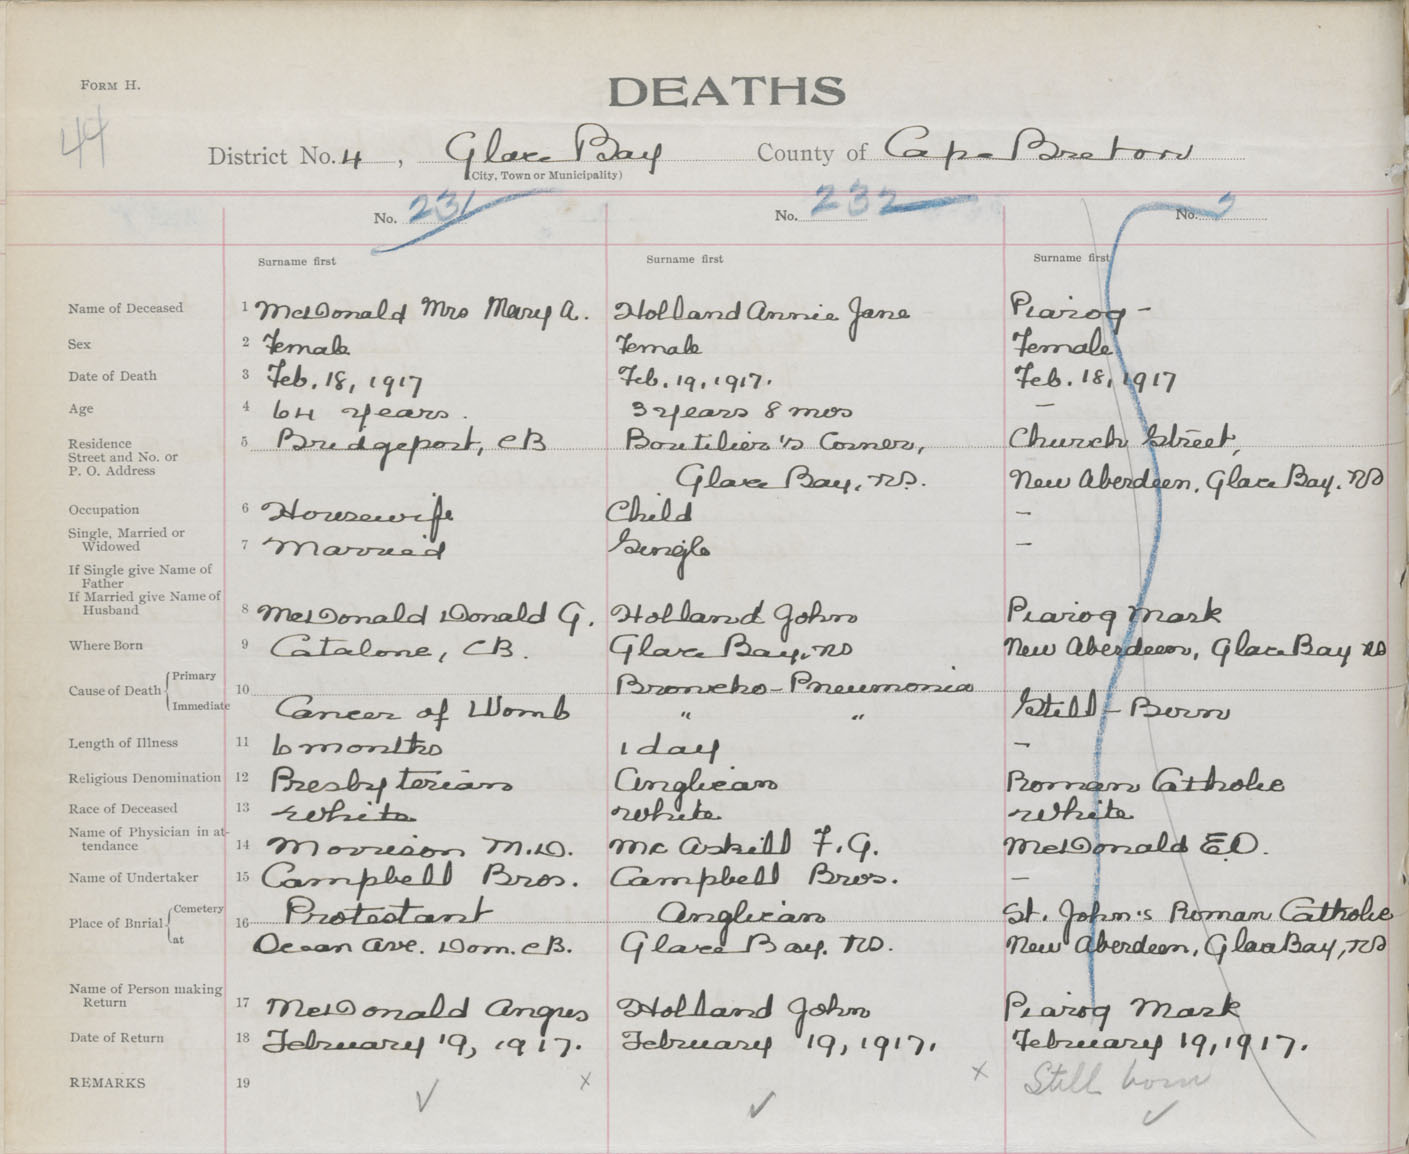 FORM H.
DEATHS
44
District No. 4, Glace Bay County of Cape Breton
(City, Town or Municipality)
No. 231 No. 232 No.
Surname first Surname first Surname first
Name of Deceased 1 McDonald Mrs Mary A. Holland Annie Jane Piarog -
Sex 2 Female Female Female
Date of Death 3 Feb. 18, 1917 Feb. 19, 1917. Feb. 18, 1917
Age 4 64 years. 3 years 8 mos —
Residence 5 Bridgeport, CB Boutilier's Corner, Church Street,
Street and No. or
P. O. Address Glace Bay, NS. New Aberdeen, Glace Bay. NS
Occupation 6 Housewife Child —
Single, Married or
Widowed 7 Married Single —
If Single give Name of
Father
If Married give Name of
Husband 8 McDonald Donald G. Holland John Piarog Mark
Where Born 9 Catalone, CB. Glace Bay, NS New Aberdeen, Glace Bay NS
Cause of Death Primary 10 Broncho-Pneumonia
Immediate Cancer of Womb " " Still-Born
Length of Illness 11 6 months 1 day —
Religious Denomination 12 Presbyterian Anglican Roman Catholic
Race of Deceased 13 White White White
Name of Physician in at-
tendance 14 Morrison M.D. McAskill F.G. McDonald E.D.
Name of Undertaker 15 Campbell Bros. Campbell Bros. —
Place of Bnrial Cemetery 16 Protestant Anglican St. John's Roman Catholic
at Ocean Ave. Dom. CB. Glace Bay. NS. New Aberdeen, Glace Bay, NS
Name of Person making
Return 17 McDonald Angus Holland John Piarog Mark
Date of Return 18 February 19, 1917. February 19, 1917. February 19, 1917.
REMARKS 19 ✓ x ✓ x Still born ✓